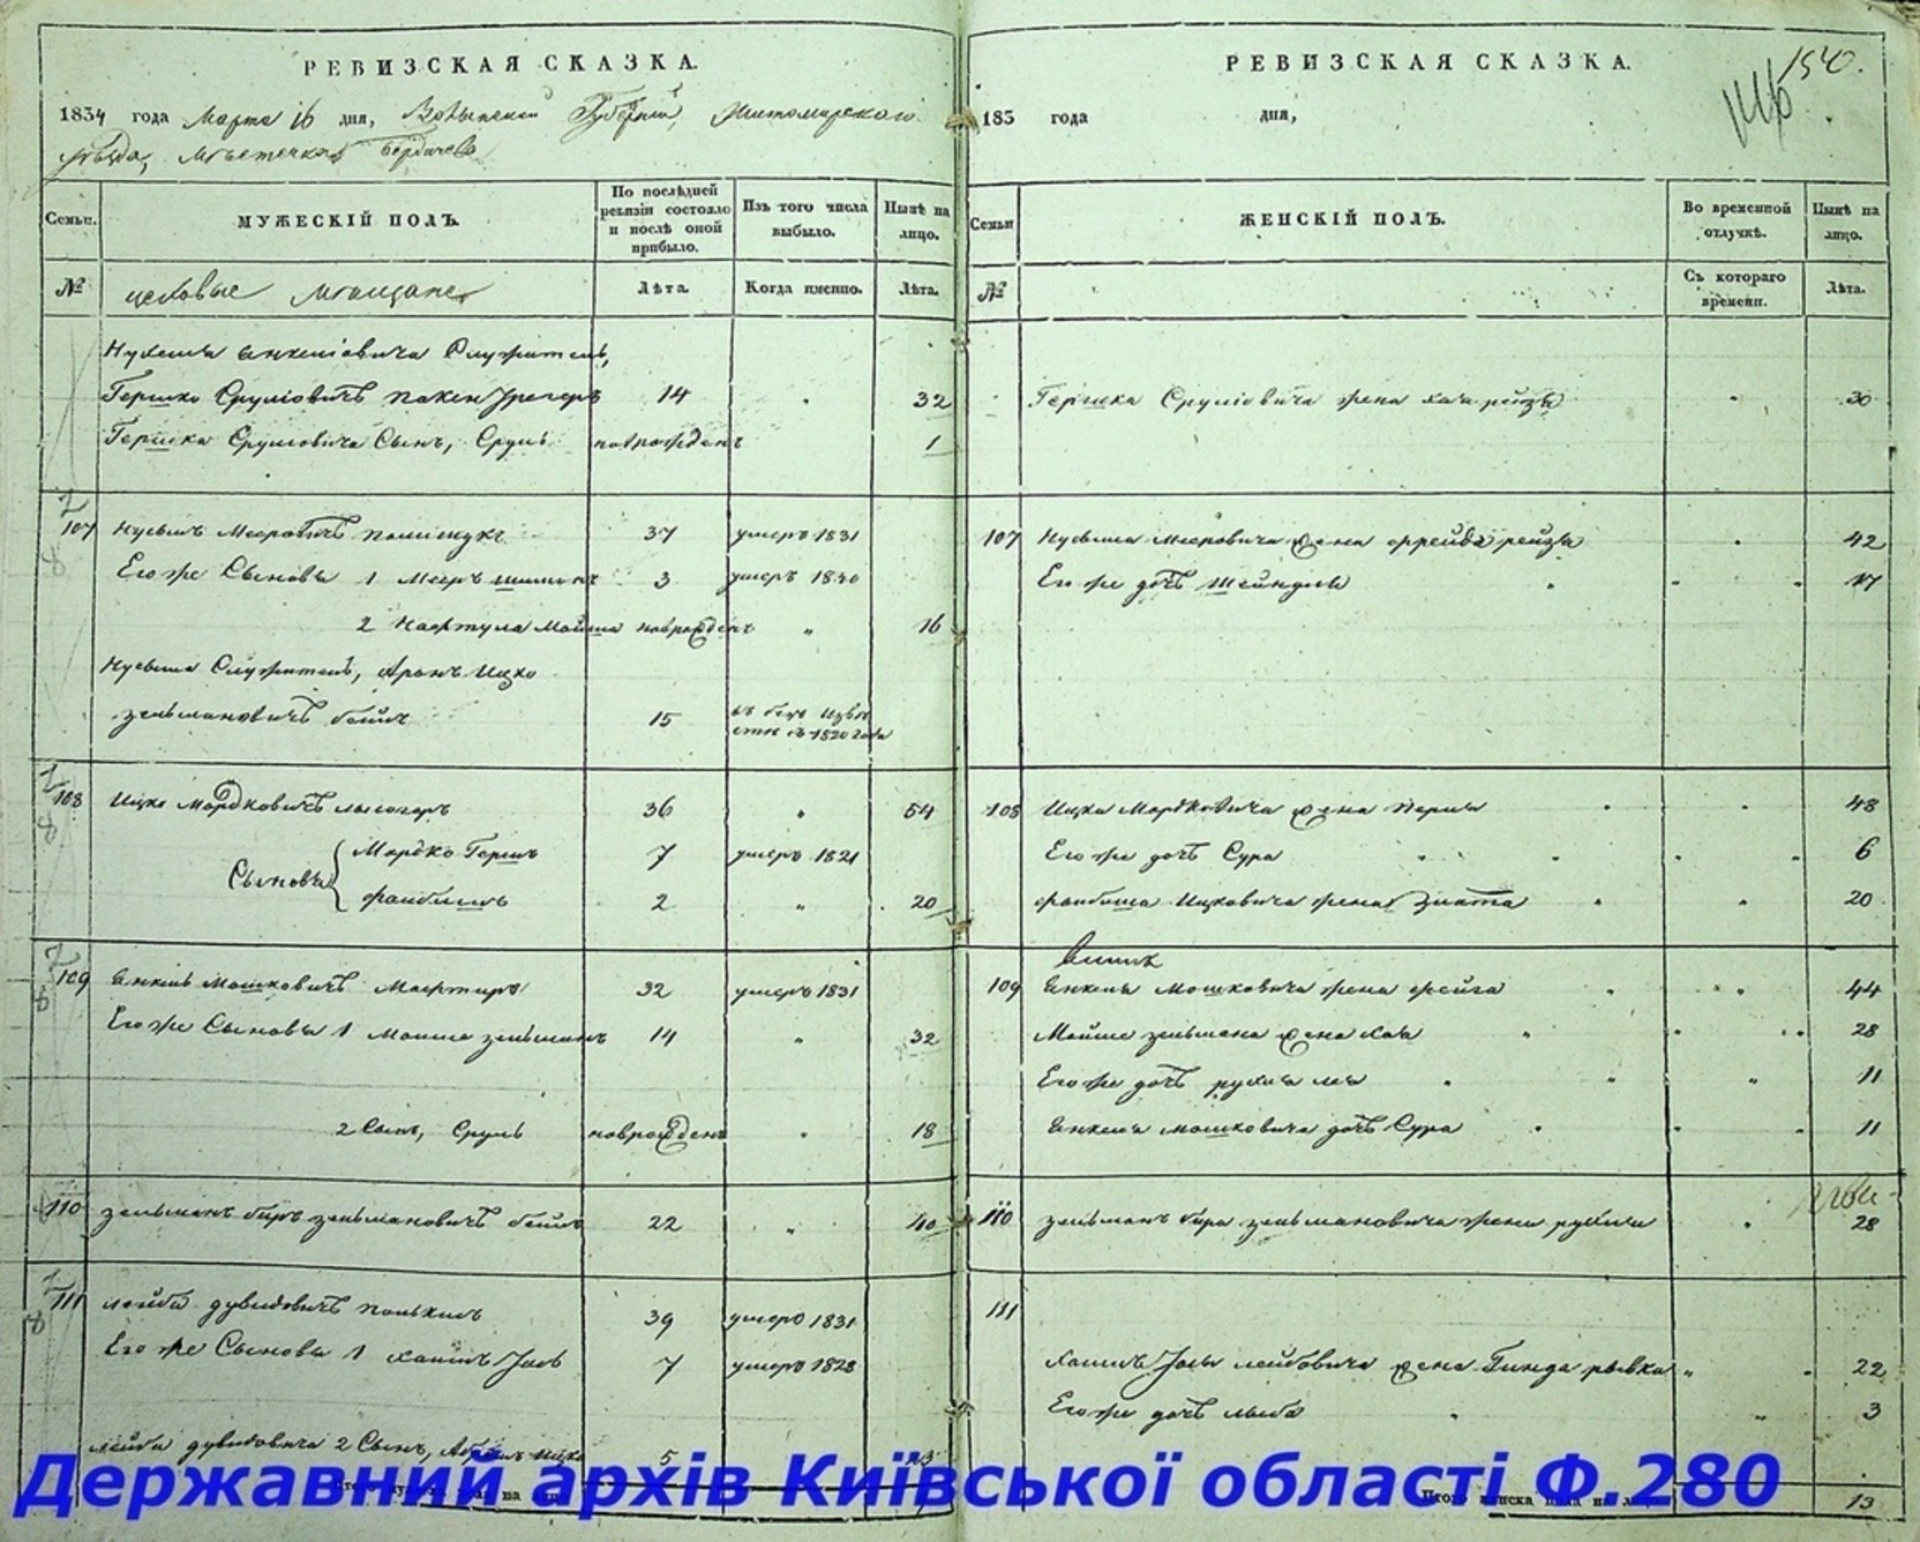 РЕВИЗСКАЯ СКАЗКА.
1834 года Марта 16 дня, Волынской Губернии, Житомирского
уезда, местечка Бердичева
Семьи. МУЖЕСКІЙ ПОЛЪ. По послѣдней ревизіи состояло и послѣ оной прибыло. Изъ того числа выбыло. Нынѣ на лицо.
№ цеховые мещане Лѣта. Когда именно. Лѣта.
Служитель,
Гершко Сруліовичъ 14 32
Гершка Сруліовича Сынъ, Сруль новрожденъ 1
107 Нусимъ Мееровичъ 37 умеръ 1831
Его же Сыновья 1 Мееръ 3 умеръ 1830
2 Нафтула Мойша новрожденъ 16
Служитель, Аронъ Ицко
зельмановичъ 15 1820 года
108 Ицко Мордковичъ 36 54
Сыновья Мордко Гершъ 7 умеръ 1821
Файбишъ 2 20
109 Янкель Мошковичъ 32 умеръ 1831
Его же Сыновья 1 Моша зельманъ 14 32
2 Сынъ, Сруль новрожденъ 18
110 зельманъ беръ зельмановичъ 22 40
111 лейба дувидовичъ 39 умеръ 1831
Его же Сыновья 1 Хаимъ Іось 7 умеръ 1828
лейбы дувидовича 2 Сынъ, Абрамъ Ицко 5
РЕВИЗСКАЯ СКАЗКА.
150.
183 года дня,
Семьи ЖЕНСКІЙ ПОЛЪ. Во временной отлучкѣ. Нынѣ на лицо.
№ Съ котораго времени. Лѣта.
Гершка Сруліовича жена хая рейзя 30
107 Мееровича жена фрейда рейзя 42
Его же дочь Шейндля 17
108 Ицка Мордковича жена Перля 48
Его же дочь Сура 6
Файбиша Ицковича жена Злата 20
109 Янкеля Мошковича жена фейга 44
Мойше зельмана жена хая 28
Его же дочь рухля лея 11
Янкеля мошковича дочь Сура 11
110 зельманъ бера зельмановича жена рухля 28
111
Хаимъ Іося лейбовича жена Гинда рывка 22
Его же дочь 3
13
Державний архів Київської області Ф.280